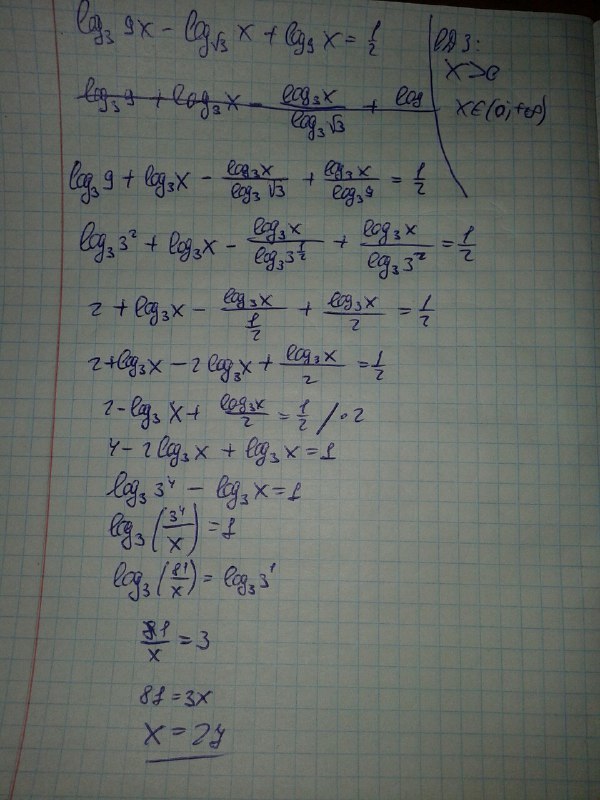 log₃ 9x − log_√3 x + log₉ x = 1/2
ОДЗ:
x > 0
x ∈ (0; +∞)
log₃ 9 + log₃ x − log₃ x / log₃ √3 + log
log₃ 9 + log₃ x − log₃ x / log₃ √3 + log₃ x / log₃ 9 = 1/2
log₃ 3² + log₃ x − log₃ x / log₃ 3^(1/2) + log₃ x / log₃ 3² = 1/2
2 + log₃ x − log₃ x / (1/2) + log₃ x / 2 = 1/2
2 + log₃ x − 2 log₃ x + log₃ x / 2 = 1/2
2 − log₃ x + log₃ x / 2 = 1/2 / · 2
4 − 2 log₃ x + log₃ x = 1
log₃ 3⁴ − log₃ x = 1
log₃ (3⁴ / x) = 1
log₃ (81 / x) = log₃ 3¹
81 / x = 3
81 = 3x
x = 27